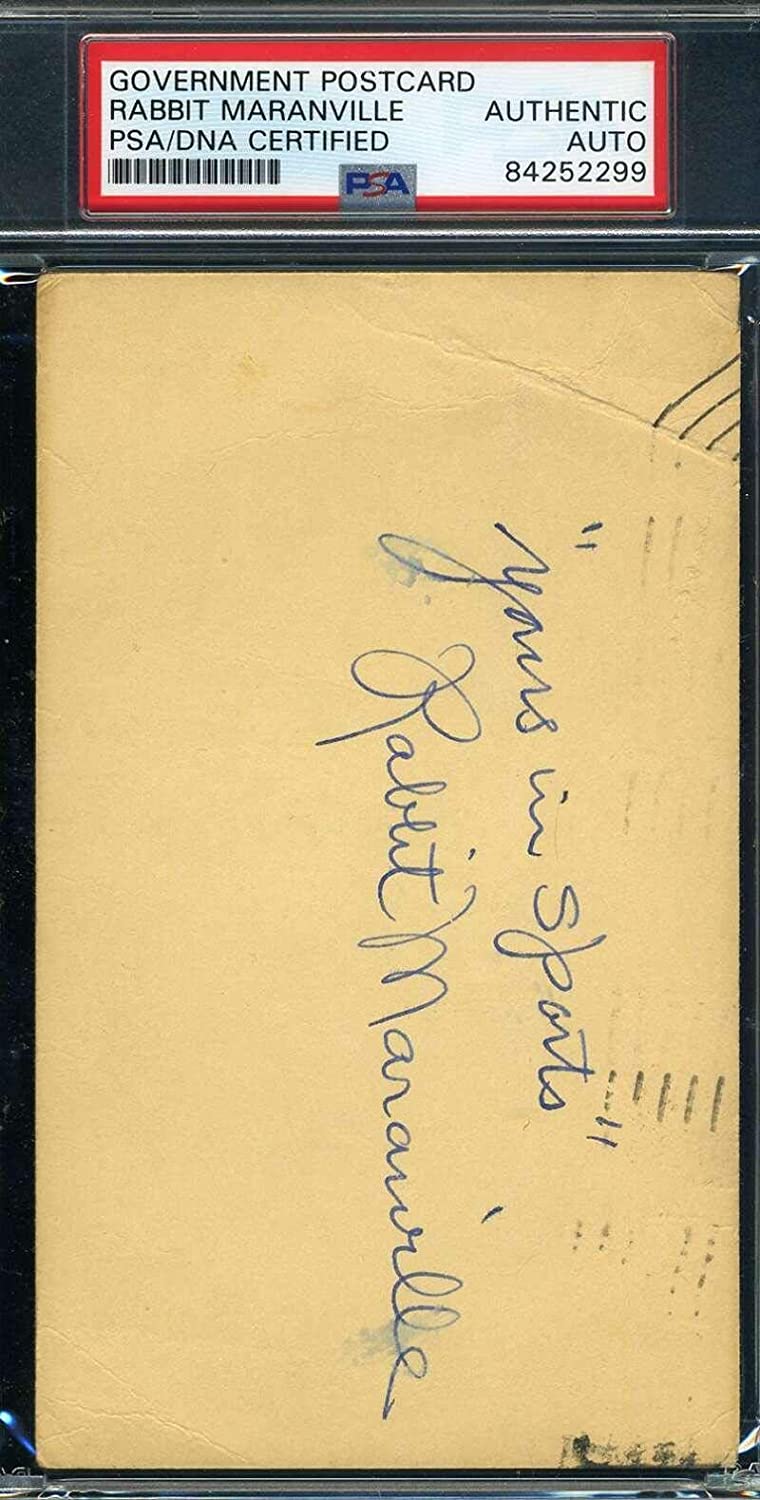 GOVERNMENT POSTCARD
RABBIT MARANVILLE AUTHENTIC
PSA/DNA CERTIFIED AUTO
PSA 84252299
"yours in Sports"
Rabbit Maranville